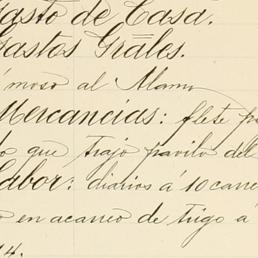 Gasto de Casa.
Gastos Grāles.
moso al Alamo
Mercancias: flete p
que trajo pavito del
Labor: diarios á 10 carre
en acarreo de trigo á
14.